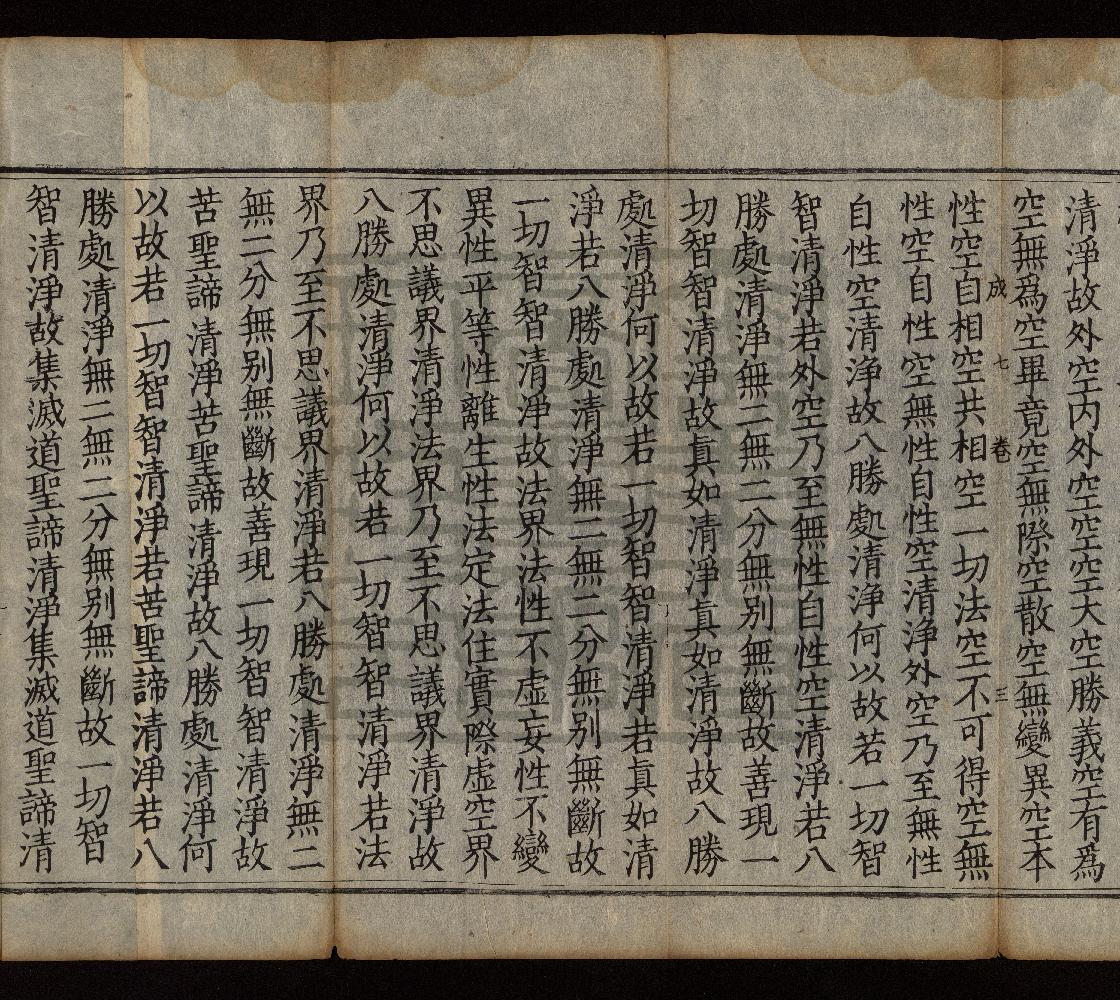 清淨故外空内外空空空大空勝義空有爲
空無爲空畢竟空無際空散空無變異空本
成 七 卷 三
性空自相空共相空一切法空不可得空無
性空自性空無性自性空清淨外空乃至無性
自性空清淨故八勝處清淨何以故若一切智
智清淨若外空乃至無性自性空清淨若八
勝處清淨無二無二分無别無斷故善現一
切智智清淨故真如清淨真如清淨故八勝
處清淨何以故若一切智智清淨若真如清
淨若八勝處清淨無二無二分無别無斷故
一切智智清淨故法界法性不虚妄性不變
異性平等性離生性法定法住實際虚空界
不思議界清淨法界乃至不思議界清淨故
八勝處清淨何以故若一切智智清淨若法
界乃至不思議界清淨若八勝處清淨無二
無二分無别無斷故善現一切智智清淨故
苦聖諦清淨苦聖諦清淨故八勝處清淨何
以故若一切智智清淨若苦聖諦清淨若八
勝處清淨無二無二分無别無斷故一切智
智清淨故集滅道聖諦清淨集滅道聖諦清